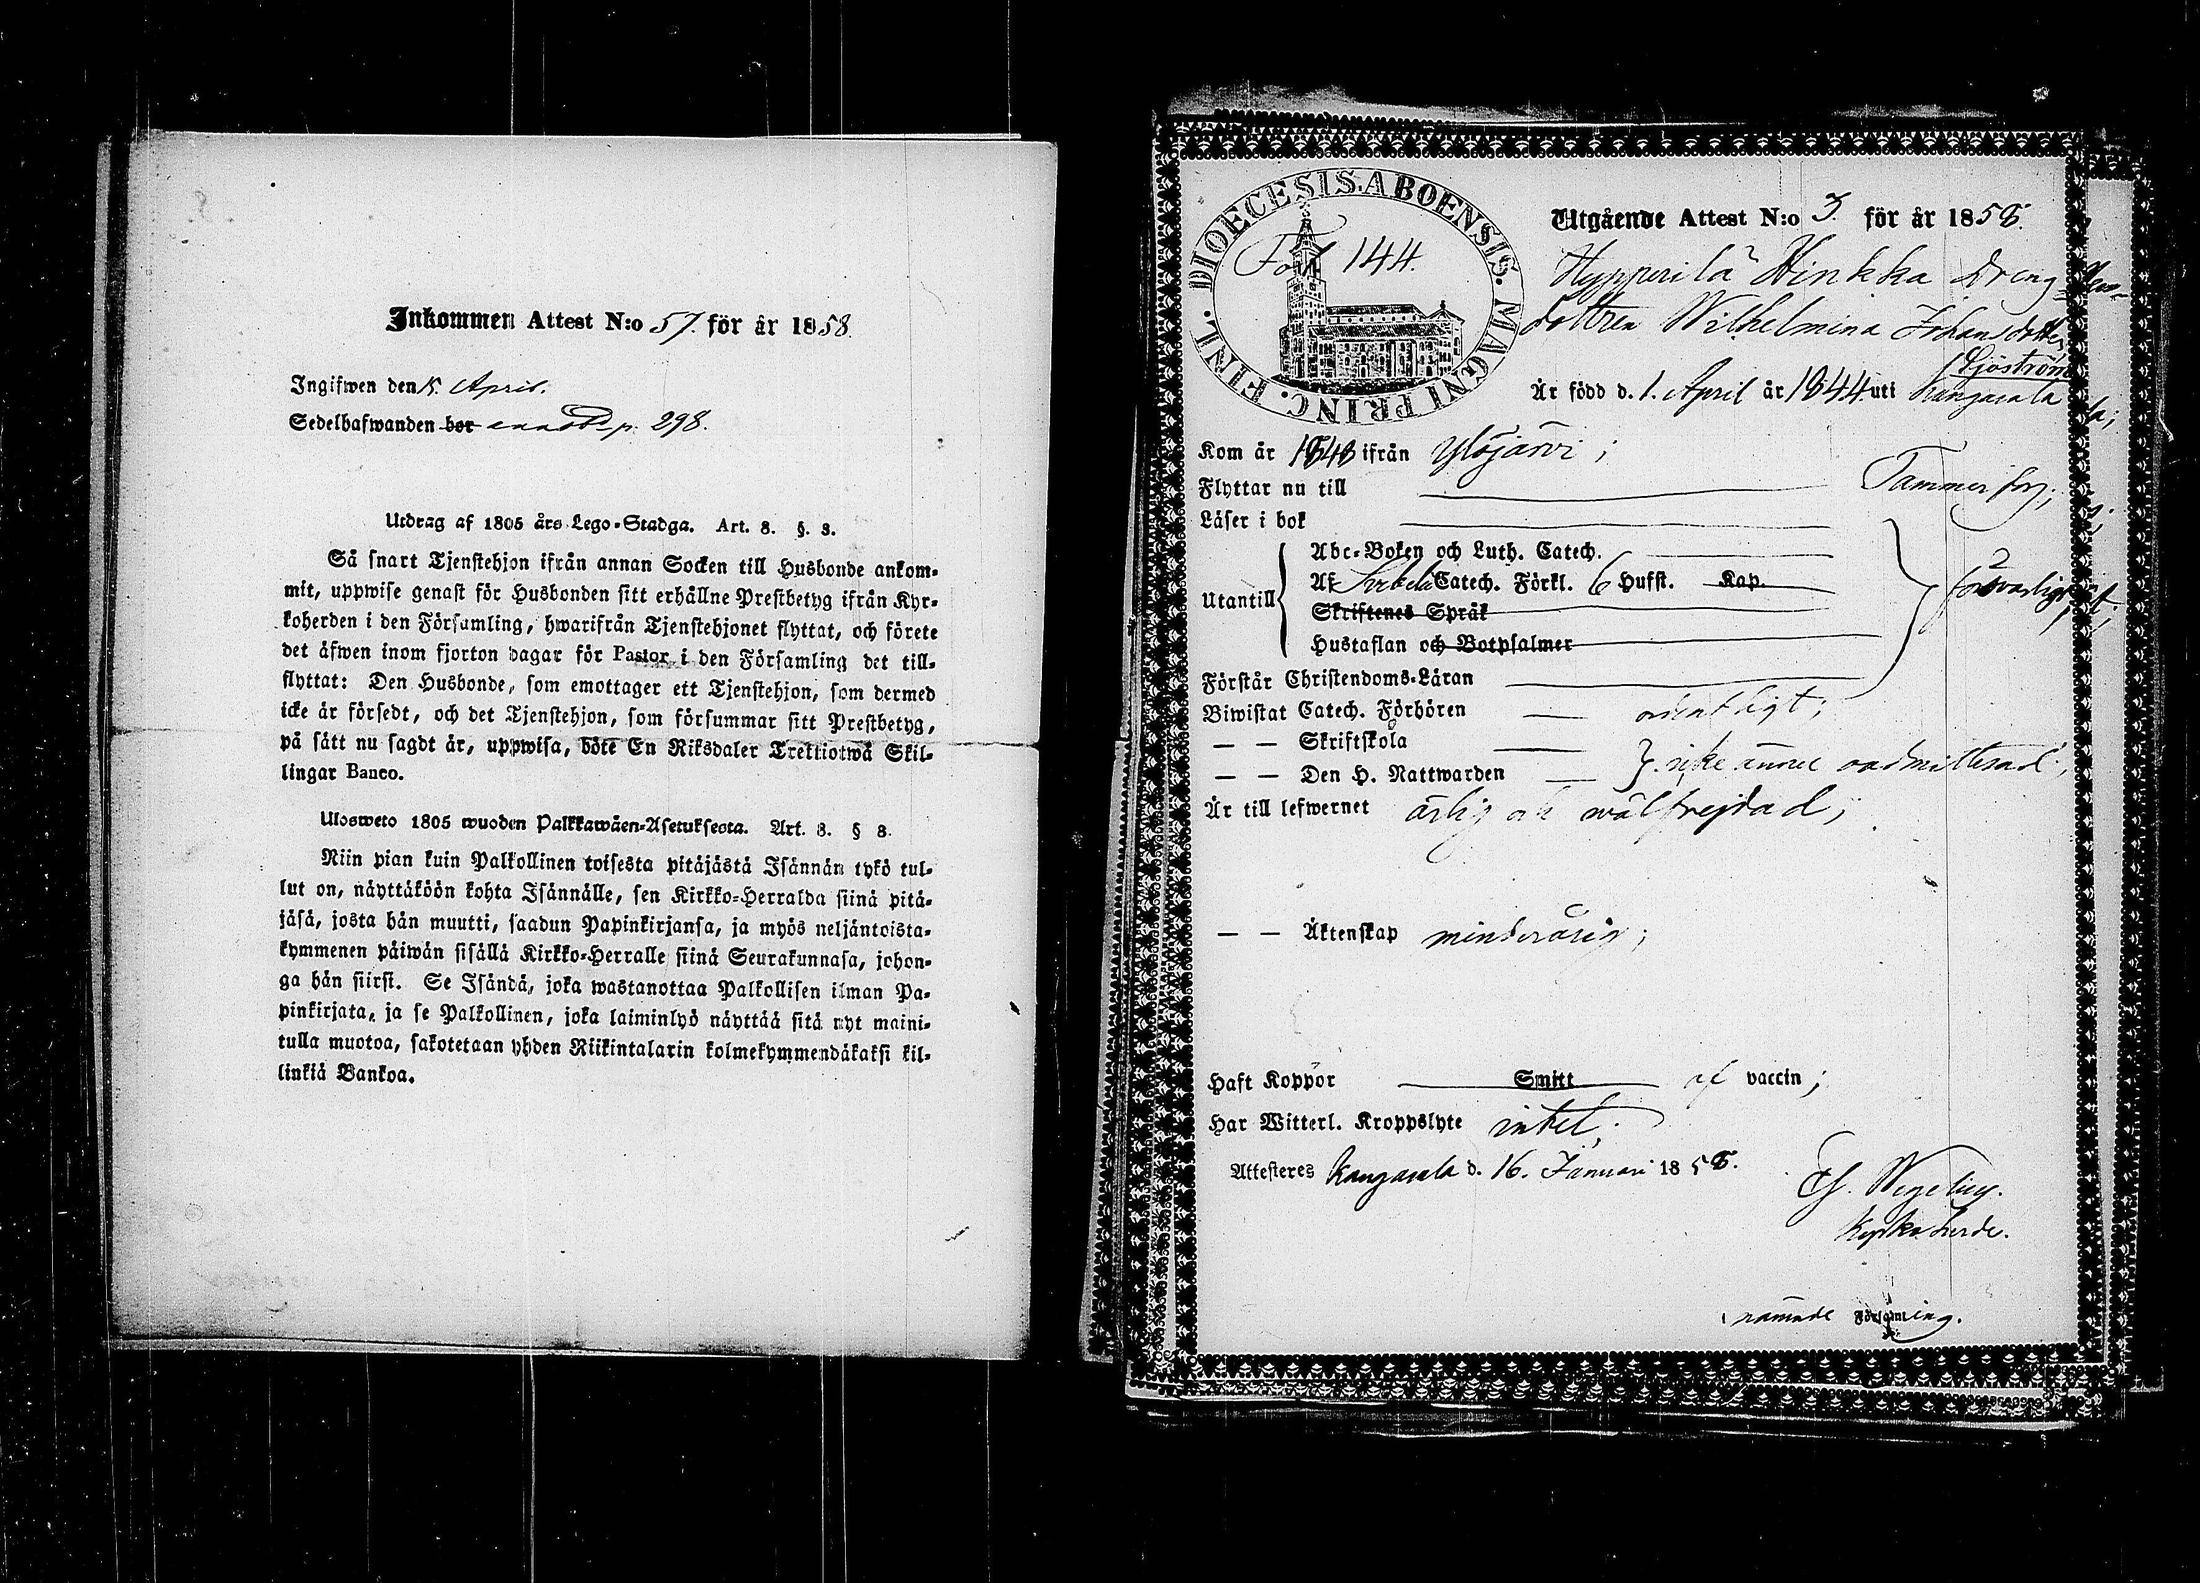 Inkommen Attest N:o 57. för år 1858.
Ingifwen den 15. April.
Sedelhafwanden bor p. 298.
Utdrag af 1805 års Lego-Stadga. Art. 8. §. 3.
Så snart Tjenstehjon ifrån annan Socken till Husbonde ankom-
mit, uppwise genast för Husbonden sitt erhållne Prestbetyg ifrån Kyr-
koherden i den Församling, hwarifrån Tjenstehjonet flyttat, och förete
det äfwen inom fjorton dagar för Pastor i den Församling det till-
flyttat: Den Husbonde, som emottager ett Tjenstehjon, som dermed
icke är försedt, och det Tjenstehjon, som försummar sitt Prestbetyg,
på sätt nu sagdt är, uppwisa, böte En Riksdaler Trettiotwå Skil-
lingar Banco.
Ulosweto 1805 wuoden Palkkawäen-Asetuksesta. Art. 8. § 8.
Niin pian kuin Palkollinen toisesta pitäjästä Isännän tykö tul-
lut on, näyttäköön kohta Isännälle, sen Kirkko-Herralda siinä pitä-
jäsä, josta hän muutti, saadun Papinkirjansa, ja myös neljäntoista-
kymmenen päiwän sisällä Kirkko-Herralle siinä Seurakunnasa, johon-
ga hän siirsi. Se Isändä, joka wastanottaa Palkollisen ilman Pa-
pinkirjata, ja se Palkollinen, joka laiminlyö näyttää sitä nyt maini-
tulla muotoa, sakotetaan yhden Riikintalarin kolmekymmendäkaksi kil-
linkiä Bankoa.
DIOECESIS. ABOENSIS. MAGNI PRINC. FINL.
Fol 144.
Utgående Attest N:o 3. för år 1858.
Hypperilä Hinkka Dreng-
dottren Wilhelmina Johansdotter
Sjöström
Är född d. 1. April år 1844 uti Kangasala
Kom år 1848 ifrån Ylöjärvi;
Flyttar nu till Tammerfors;
Läser i bok
Utantill
Abc-Boken och Luth. Catech.
Af Catech. Förkl. 6 Hufst. Kap.
försvarligt;
Skriftenes Språk
Hustaflan och Botpsalmer
Förstår Christendoms-Läran
Biwistat Catech. Förhören ordentligt;
— — Skriftskola
— — Den H. Nattwarden icke ännu admitterad;
Är till lefwernet ärlig och wälfrejdad;
— — Äktenskap minderårig;
Haft Koppor Smitt af vaccin;
Har Witterl. Kroppslyte intet;
Attesteres Kangasala d. 16. Januari 1858.
Wegelius.
Kyrkoherde.
i nämnde Församling.